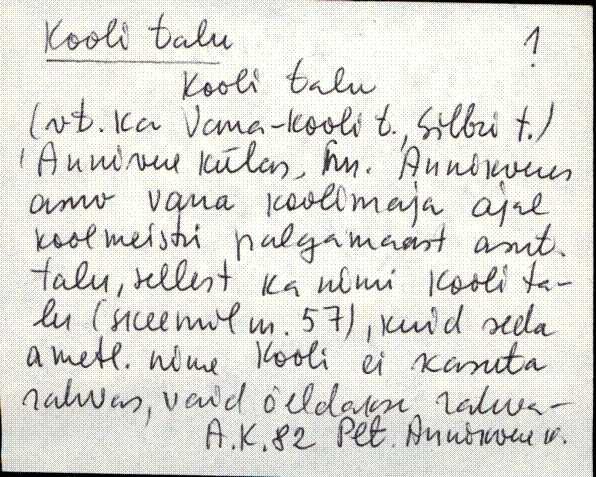 Kooli talu 1
Kooli talu
(vt. ka Vana-Kooli t., Silbri t.)
Annikvere külas, hrl. Annikveres
asuv vana koolimaja ajal
koolmeistri palgamaast asut.
talu, sellest ka nimi Kooli ta-
lu (skeemil nr. 57), kuid seda
ametl. nime Kooli ei kasuta
rahvas, vaid öeldakse rahva-
A.K.82 Plt. Annikvere k.